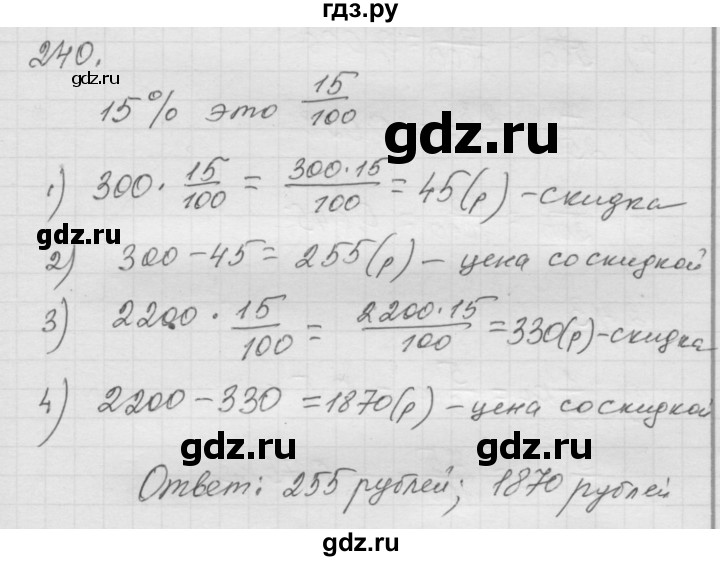 гдз.ру
240.
15% это 15/100
1) 300 · 15/100 = 300·15/100 = 45(р) - скидка
2) 300 - 45 = 255(р) - цена со скидкой
3) 2200 · 15/100 = 2200·15/100 = 330(р) - скидка
4) 2200 - 330 = 1870(р) - цена со скидкой
Ответ: 255 рублей; 1870 рублей
gdz.ru
gdz.ru
gdz.ru
gdz.ru
gdz.ru
gdz.ru
gdz.ru
gdz.ru
gdz.ru